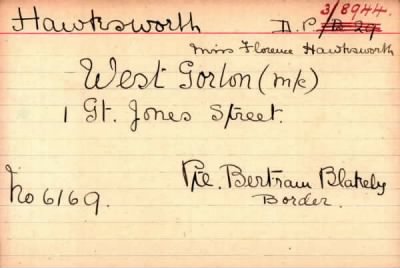 3/8944.
Hawksworth D.P/B 29
Miss Florence Hawksworth
West Gorton (m/c)
1 Gt. Jones Street.
Pte. Bertram Blakely
No 6169. Border.